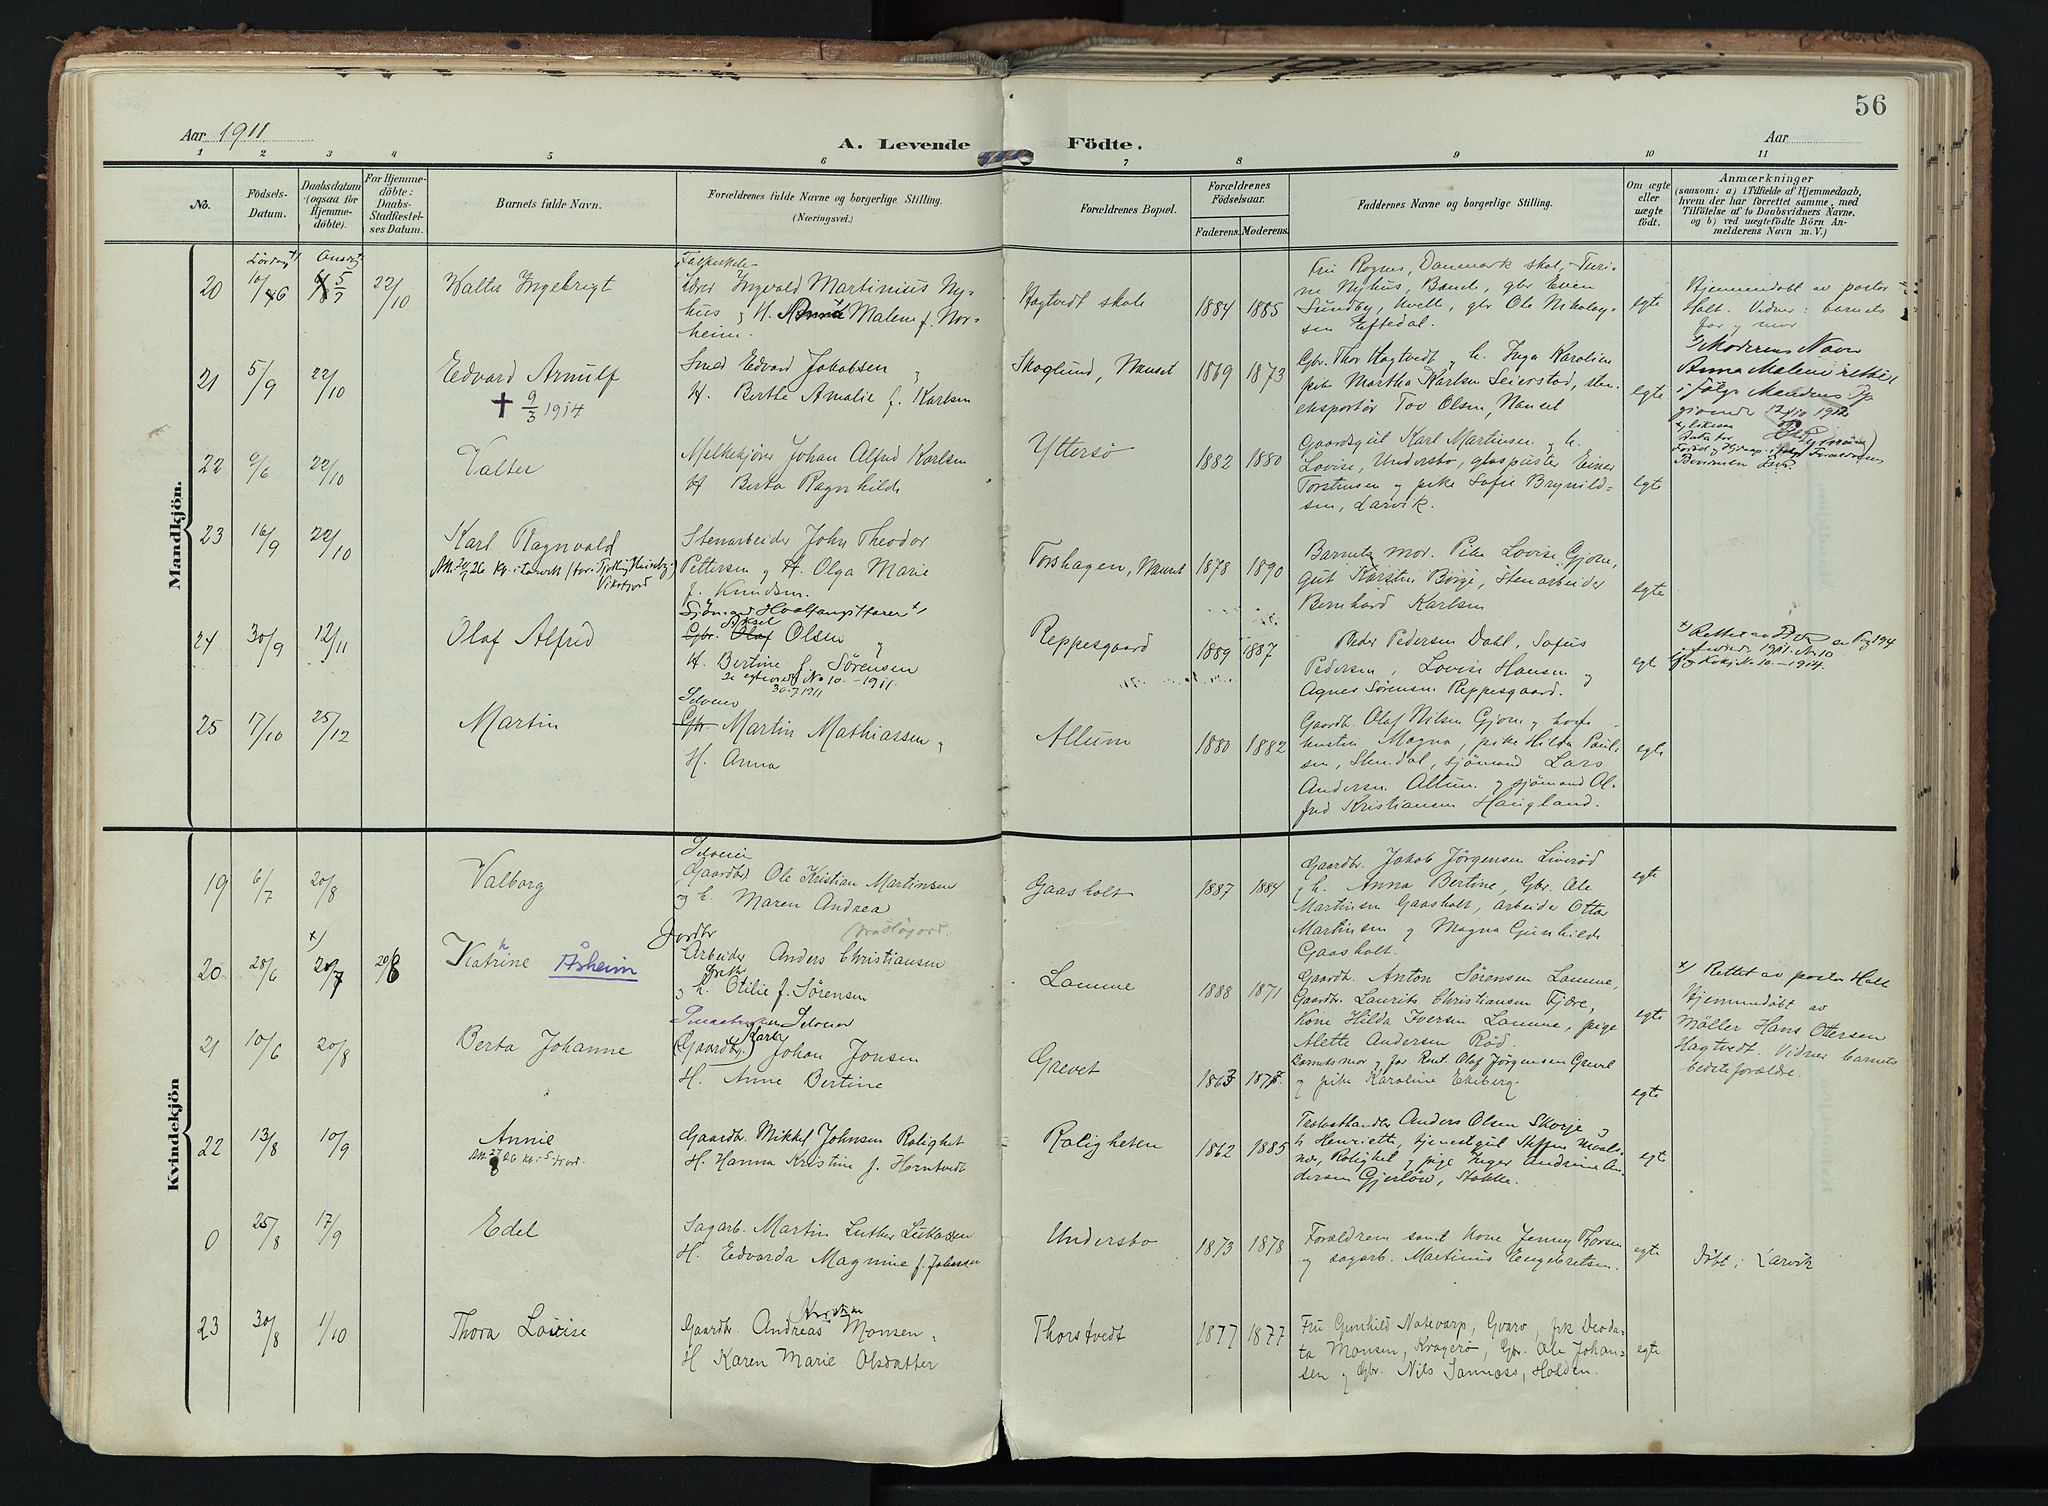 56
Aar 1911
A. Levende
Födte.
Aar
1 2 3 4 5 6 7 8 9 10 11
No.
Födsels-
Datum.
Daabsdatum
(ogsaa for
Hjemme-
döbte).
For Hjemme-
döbte:
Daabs-
Stadfæstel-
ses Datum.
Barnets fulde Navn.
Forældrenes fulde Navne og borgerlige Stilling.
(Næringsvei.)
Forældrenes Bopæl.
Forældrenes
Födselsaar.
Faderens.
Moderens.
Faddernes Navne og borgerlige Stilling.
Om ægte
eller
uægte
födt.
Anmærkninger
(saasom: a) i Tilfælde af Hjemmedaab,
hvem der har forrettet samme, med
Tilföielse af to Daabsvidners Navne,
og b) ved uægtefödte Börn An-
melderens Navn m. V.)
Mandkjön.
20
22/10
Walter Ingebrigt
lærer Ingvald Martinius Ny-
hus og H. Malene f. Nor-
heim.
Hagtvedt skole
1884
1885
Fru Rognes, Danmark skol, Turi-
ne Nyhus, Bamle, gbr Even
Sundby, Hvelt, gbr Ole Nikolay-
sen Eftedal.
egte
Hjemmedöbt av pastor
Holt. Vidner: barnets
far og mor
Moderens Navn
Anna Malene rettet
i følge Mandens Op
givende 12/10 1912
21
5/9
22/10
Edvard Arnulf
✝ 9/3 1914
Smed Edvard Jakobsen og
H. Berthe Amalie f. Karlsen
Skoglund, Nanset
1869
1873
Gbr. Thor Hagtvedt og h. Inga Karoline
pike Martha Karlsen Seierstad, sten-
eksportör Tov Olsen, Nanset
egte
22
9/6
22/10
Valter
Melkekjører Johan Alfred Karlsen
H Berta Ragnhilde
Yttersö
1882
1880
Gaardsgut Karl Martinsen og h.
Lovise, Undersbo, glaspuster Einar
Torstensen og pike Sofie Brynild-
sen, Larvik.
egte
23
16/9
22/10
Karl Ragnvald
Stenarbeider John Theodor
Pettersen og H. Olga Marie
f. Knudsen.
Torshagen, Nanset
1878
1890
Barnets mor. Pike Lovise Gjone,
gut Karsten Børge, Stenarbeider
Bernhard Karlsen
egte
24
30/9
12/11
Olaf Alfred
Sjømand Hvalfangstfarer x)
Gbr. Olaf Aksel Olsen og
H. Bertine f. Sørensen
No 10 - 1911.
30.7 1911
Reppesgaard
1889
1887
Peder Pedersen Dahl, Sofus
Pedersen, Lovise Hansen og
Agnes Sørensen Reppesgaard.
egte
x) Rettet av
1911. No 10
No 10 - 1914.
25
17/10
25/12
Martin
Selveier
Gbr. Martin Mathiassen og
H. Anna
Allum
1880
1882
Gaardb. Olaf Nilsen Gjone og hans
hustru Magna, pike Hilda Paul-
sen, Stendal, sjömand Lars
Andersen Allum og sjömand Al-
fred Kristiansen Haugland.
egte
Kvindekjön
19
6/7
20/8
Valborg
Selveier
Gaardbr Ole Kristian Martinsen
og h. Maren Andrea
Gaasholt
1887
1884
Gaardbr. Jakob Jørgensen Liverød
og h. Anna Bertine, Gbr. Ole
Martinsen Gaasholt, arbeider Otto
Martinsen og Magna Gunhilde
Gaasholt.
egte
20
28/6
x)
20/7
20/8
Kathrine Åsheim
Jordbr
Arbeider Anders Christiansen
og h. Otilie f. Sørensen
Lamme
1888
1871
Gaardb. Anton Sørensen Lamme,
Gaardbr. Laurits Christiansen Fjære,
Kone Hilda Iversen Lamme, pige
Alette Andersen Röd.
egte
x) Rettet av pastor Holt
Hjemmedöbt av
Møller Hans Ottersen
Hagtvedt. Vidner barnets
bedsteforældre.
21
10/6
20/8
Berta Johanne
Selveier
(Gaardbr.) Karl Johan Jonsen
H. Anne Bertine
Grevet
1863
1875
Barnets mor og far. Rent. Olaf Jørgensen Grevet
og pike Karoline Ekeberg.
egte
22
13/8
10/9
Annie
Gaardbr. Mikkel Johnsen Rolighet
H. Hanna Kristine f. Hørntvedt
Roligheten
1862
1885
Trælasthandler Anders Olsen Skorje og
h. Henriette, tjenestgut Steffen
Rolighet og pige Inger Andrine An-
dersen Gjerløw, Stokke.
egte
0
25/8
17/9
Edel
Sagarb. Martin Luther Lukassen
H. Edvarda Magnine f. Johansen
Undersbo
1873
1878
Forældrene samt Kone Jenny Thorsen
og sagarb. Martinus Engebretsen.
egte
døbt i Larvik
23
30/8
1/10
Thora Lovise
Gaardbr. Andreas Kristian Monsen.
H Karen Marie Olsdatter
Thorstvedt
1877
1877
Fru Gunhild Natevarp, Gvarv, frk Deoda-
ta Monsen, Kragerø, Gbr. Ole Johan-
sen og Gbr. Nils Sannæss, Holden.
egte